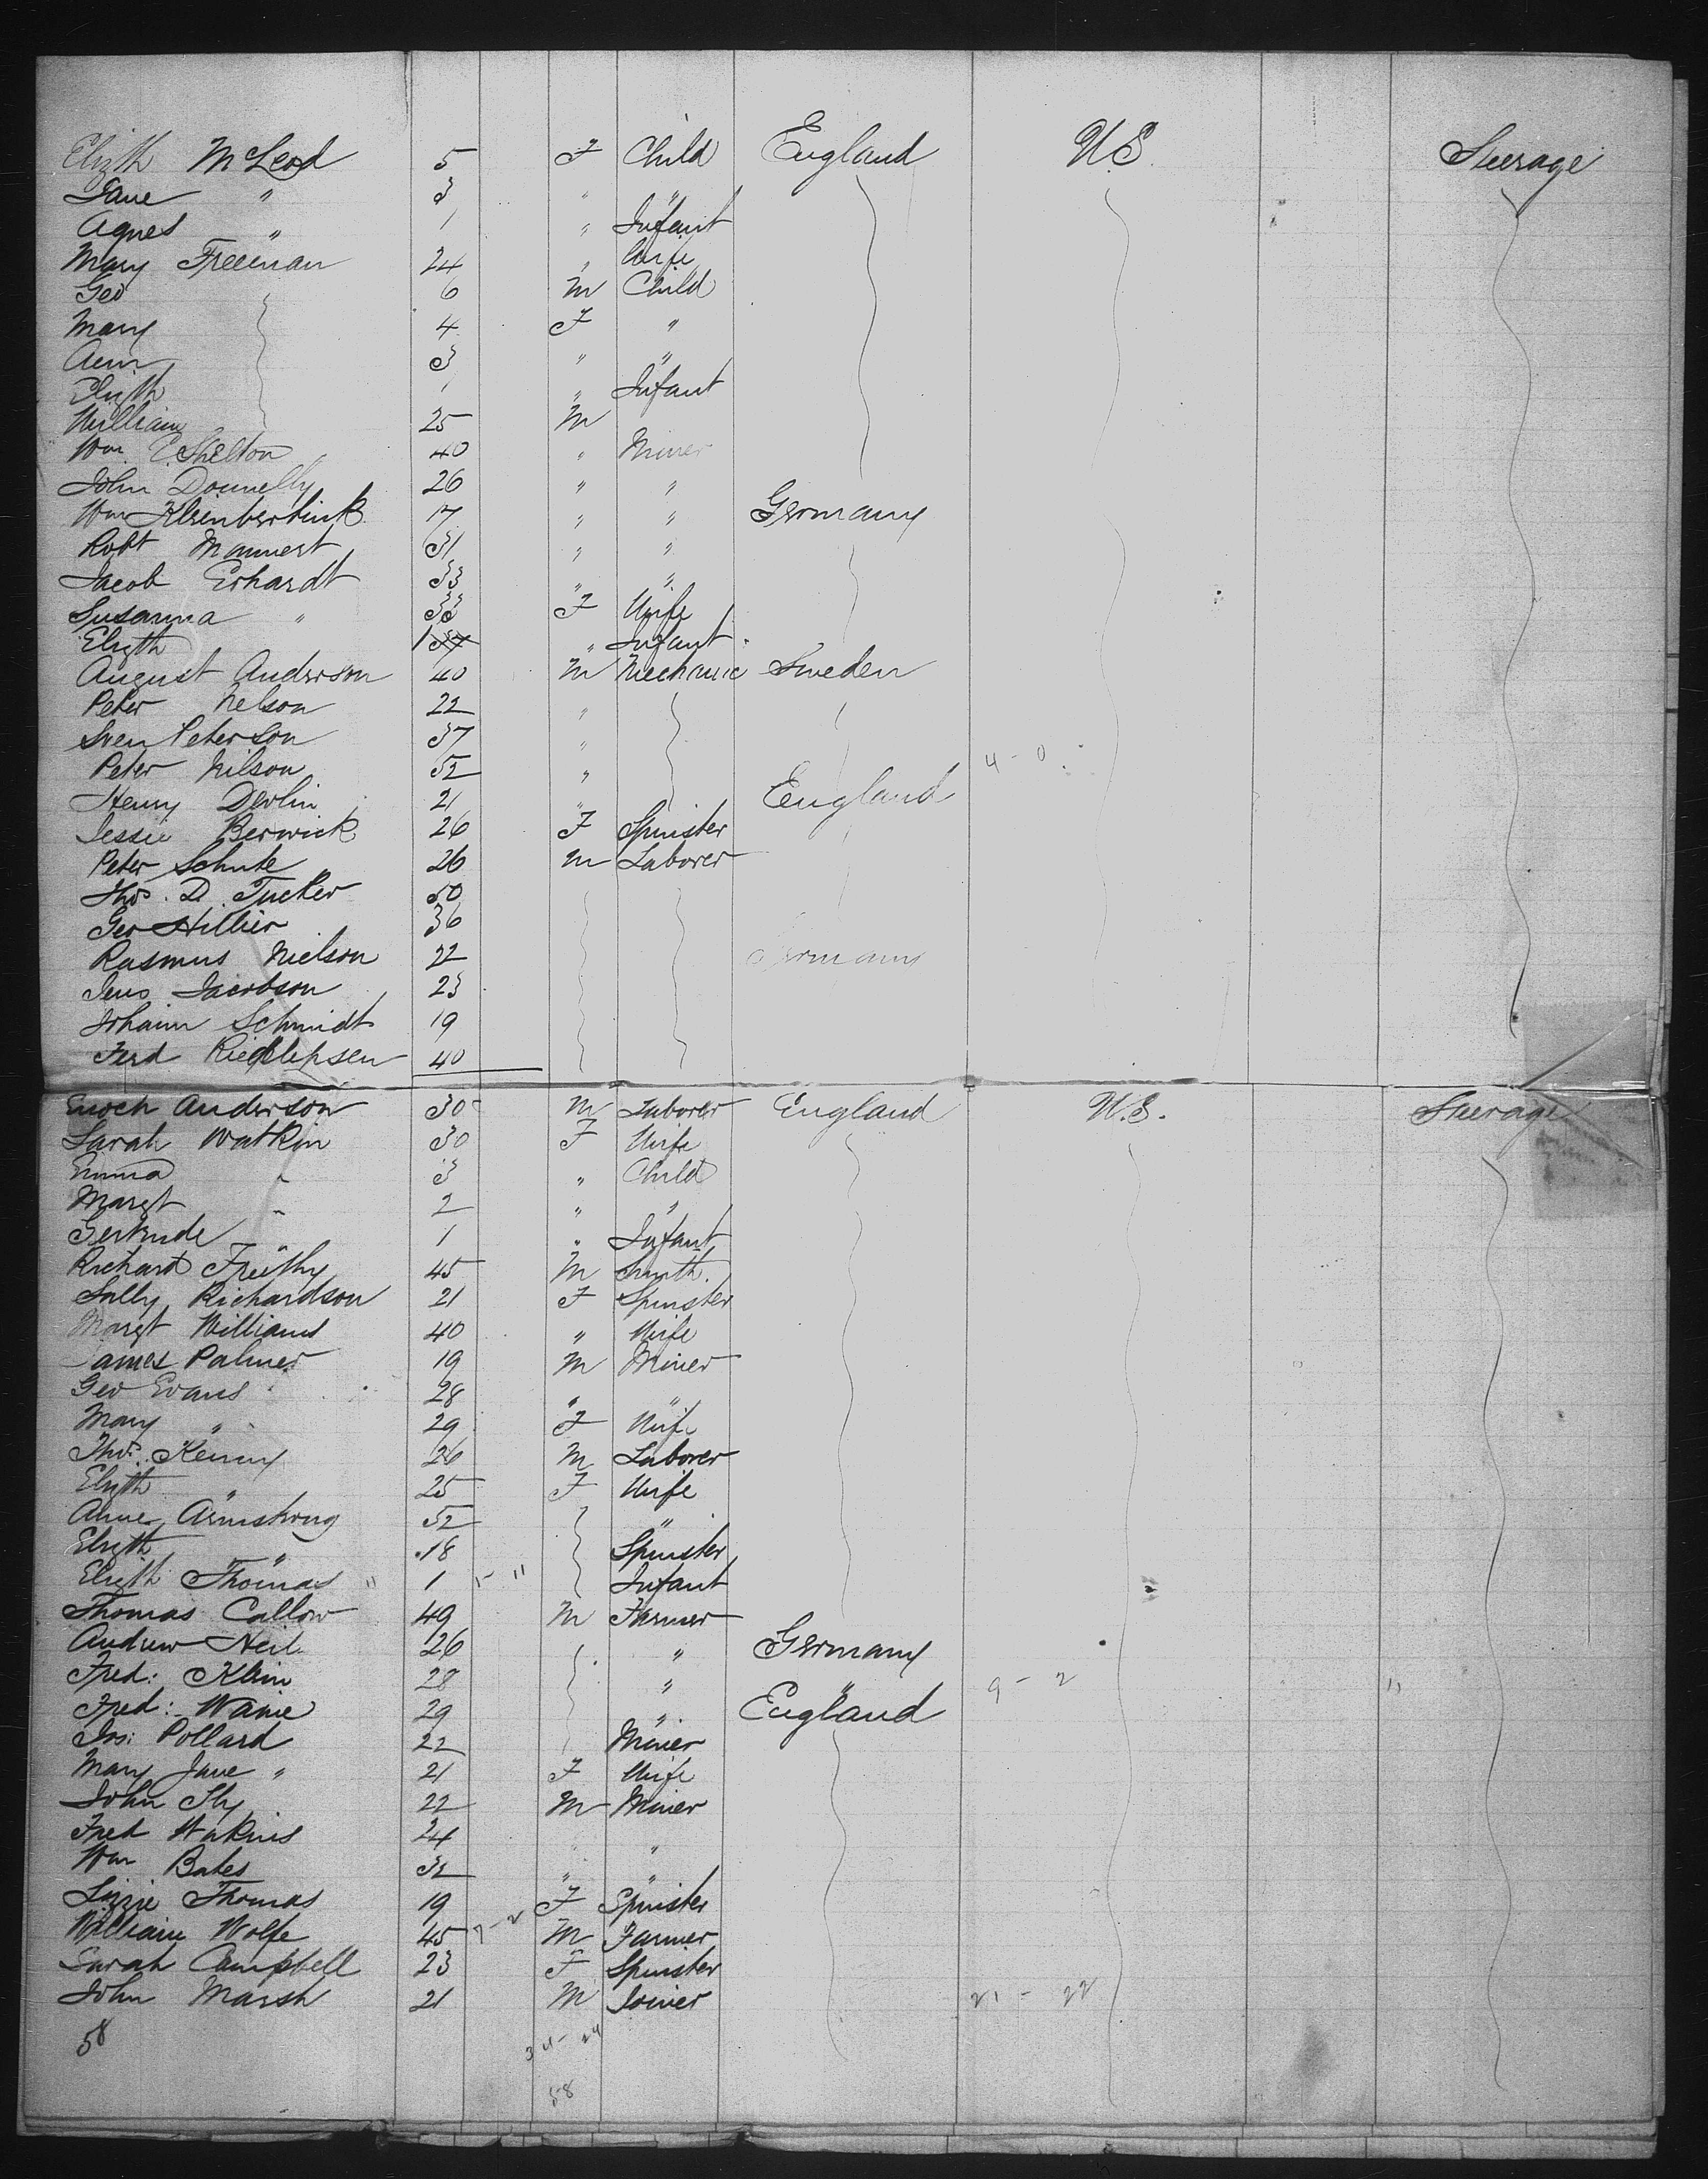 Elizth McLeod 5 F Child England U.S. Steerage
Jane " 3 " "
Agnes " 1 " Infant
Mary Freeman 24 " Wife
Geo 6 M Child
Mary 4 F "
Ann 3 " "
Elizth 1 " Infant
William 25 M
Wm. E. Shelton 40 " Miner
John Donnelly 26 " "
Wm 17 " " Germany
Robt Mannert 31 " "
Jacob Erhardt 33 " "
Susanna " 33 F Wife
Elizth 1 " Infant
August Anderson 40 M Mechanic Sweden
Peter Nelson 22 "
Sven Peterson 37 "
Peter Nilson 52 " 4 - 0
Henry Devlin 21 " England
Jessie Berwick 26 F Spinster
Peter Schute 26 M Laborer
Thos. D. Tucker 50
Geo Hillier 36
Rasmus Nielson 22 Germany
Jens Jacobson 23
Johann Schmidt 19
Ferd 40
Enoch Anderson 30 M Laborer England U.S. Steerage
Sarah Watkin 30 F Wife
Emma " 3 " Child
Margt " 2 " "
Gertrude " 1 " Infant
Richard Freethy 45 M Smith.
Sally Richardson 21 F Spinster
Margt Williams 40 " Wife
James Palmer 19 M Miner
Geo Evans 28 " "
Mary " 29 F Wife
Thos. Kenny 26 M Laborer
Elizth " 25 F Wife
Armstrong 52 "
Elizth " 18 Spinster
Elizth Thomas " 1 Infant
Thomas Callow 49 M Farmer
Andrew Neil 26 " Germany
Fred: Klein 28 " " 9 - 2 "
Fred: Warne 29 " England
Jos: Pollard 22 Miner
Mary Jane " 21 F Wife
John Sly 22 M Miner
Fred Watkins 24 " "
Wm Bates 32 " "
Lizzie Thomas 19 F Spinster
William Wolfe 45 7-2 M Farmer
Sarah Campbell 23 F Spinster
John Marsh 21 M Joiner 21 - 22
58
34 - 24
58